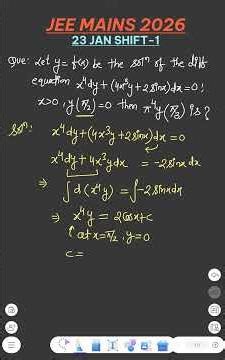 JEE MAINS 2026
23 JAN SHIFT-1
Que: Let y = f(x) be the solⁿ of the diff
equation x⁴dy + (4x³y + 2sinx)dx = 0;
x>0, y(π/2) = 0 then π⁴y(π/3) is?
Solⁿ: x⁴dy + (4x³y + 2sinx)dx = 0
x⁴dy + 4x³y dx = -2sinx dx
⇒ ∫d(x⁴y) = ∫-2sinx dx
⇒ x⁴y = 2cosx + c
at x = π/2, y = 0
c =